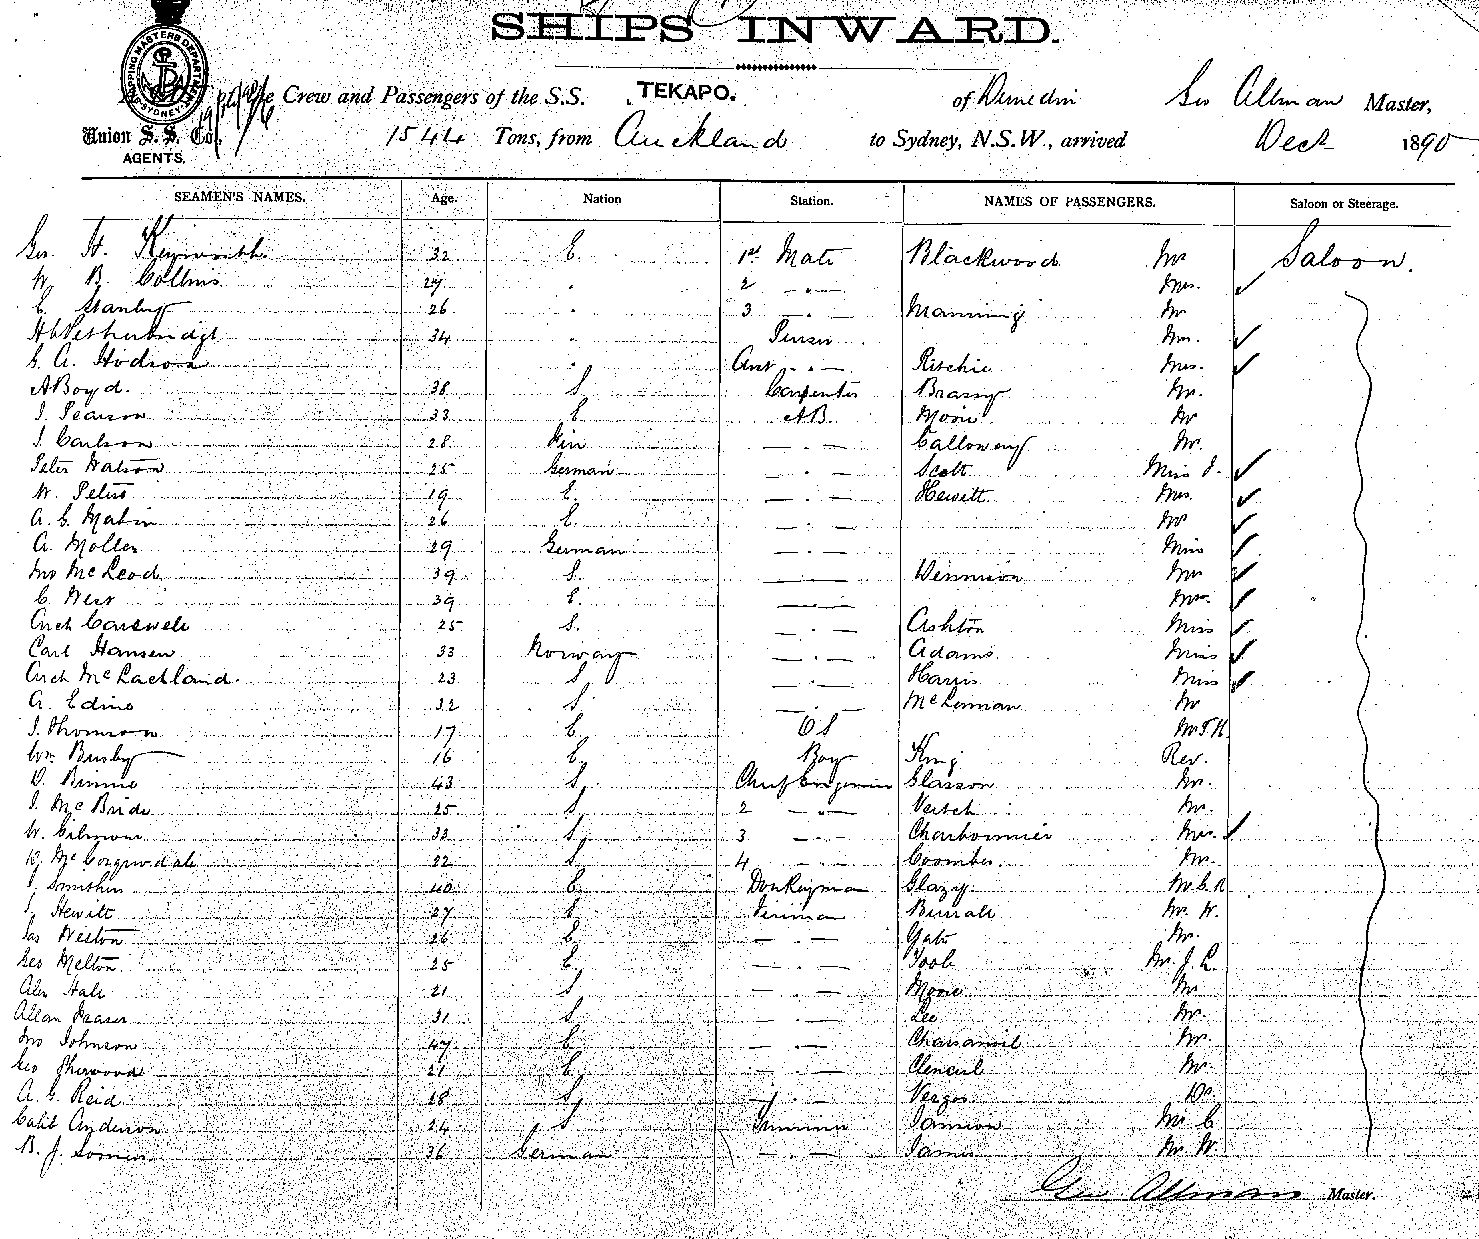 SHIPS INWARD.
SHIPPING MASTERS DEPARTMENT SYDNEY
the Crew and Passengers of the S.S. TEKAPO. of Dunedin Geo Allman Master,
Union S. S. Co.
AGENTS.
1544 Tons, from Auckland to Sydney, N.S.W., arrived Decr 1890
SEAMEN'S NAMES. Age. Nation Station. NAMES OF PASSENGERS. Saloon or Steerage.
Geo. H. Kenworth 32 E. 1st Mate Blackwood Mr Saloon.
W. B. Collins 27 " 2 — " — Mrs. ✓
E. Stanley 26 " 3 — " — Manning Mr
34 " Purser Mrs. ✓
G. A. Hodson " — " — Ritchie Mrs. ✓
A Boyd. 38 S Carpenter Brassy Mr.
J. Pearson 33 E AB. Mr
J. Carlson 28 Fin — " — Calloway Mr.
Peter Watson 25 German — " — Scott Miss J. ✓
W. Peters 19 E. — " — Hewitt Mrs. ✓
26 E. — " — Mr ✓
A. Moller 29 German — " — Miss ✓
Jno McLeod 39 S. — " — Mr ✓
C. West 39 E. — " — Mrs. ✓
Arch Carswell 25 S. — " — Ashton Miss ✓
Carl Hansen 33 Norway — " — Adams Miss ✓
Arch McLachland. 23 S — " — Harris Miss ✓
A. Edino 32 S — " — McLennan Mr
J. Thomson 17 E. O S
Wm Busby 16 E. Boy King Rev.
D. Binnie 43 S. Chief Engineer Glasson Mr.
J. McBride 25 S 2 — " — Veitch Mr.
W. Gilmour 33 S, 3 — " — Charbonnier Mrs. ✓
McCorquodale 22 S 4 — " — Coombes. Mr.
Smithers 40 E. Donkeyman Mr.
Hewitt 27 E Fireman Mr. W.
Jas Weston 26 E. — " — Mr.
Geo Melton 25 E. — " — Mr. J.
Alex Hale 21 S — " — Mr
Allan Fraser 31 S. — " — Lee Mr.
Jno Johnson 47 E — " — Mr.
Geo Sherwood 21 E. — " — Mr
A. G. Reid 18 S, — " — Dr.
Anderson 24 S Trimmer Mr. C
B. J. 36 German — " — James Mr. W
Geo Allman Master.